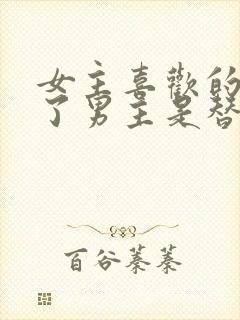 女主喜歡的
了男主是替
百谷蓁蓁